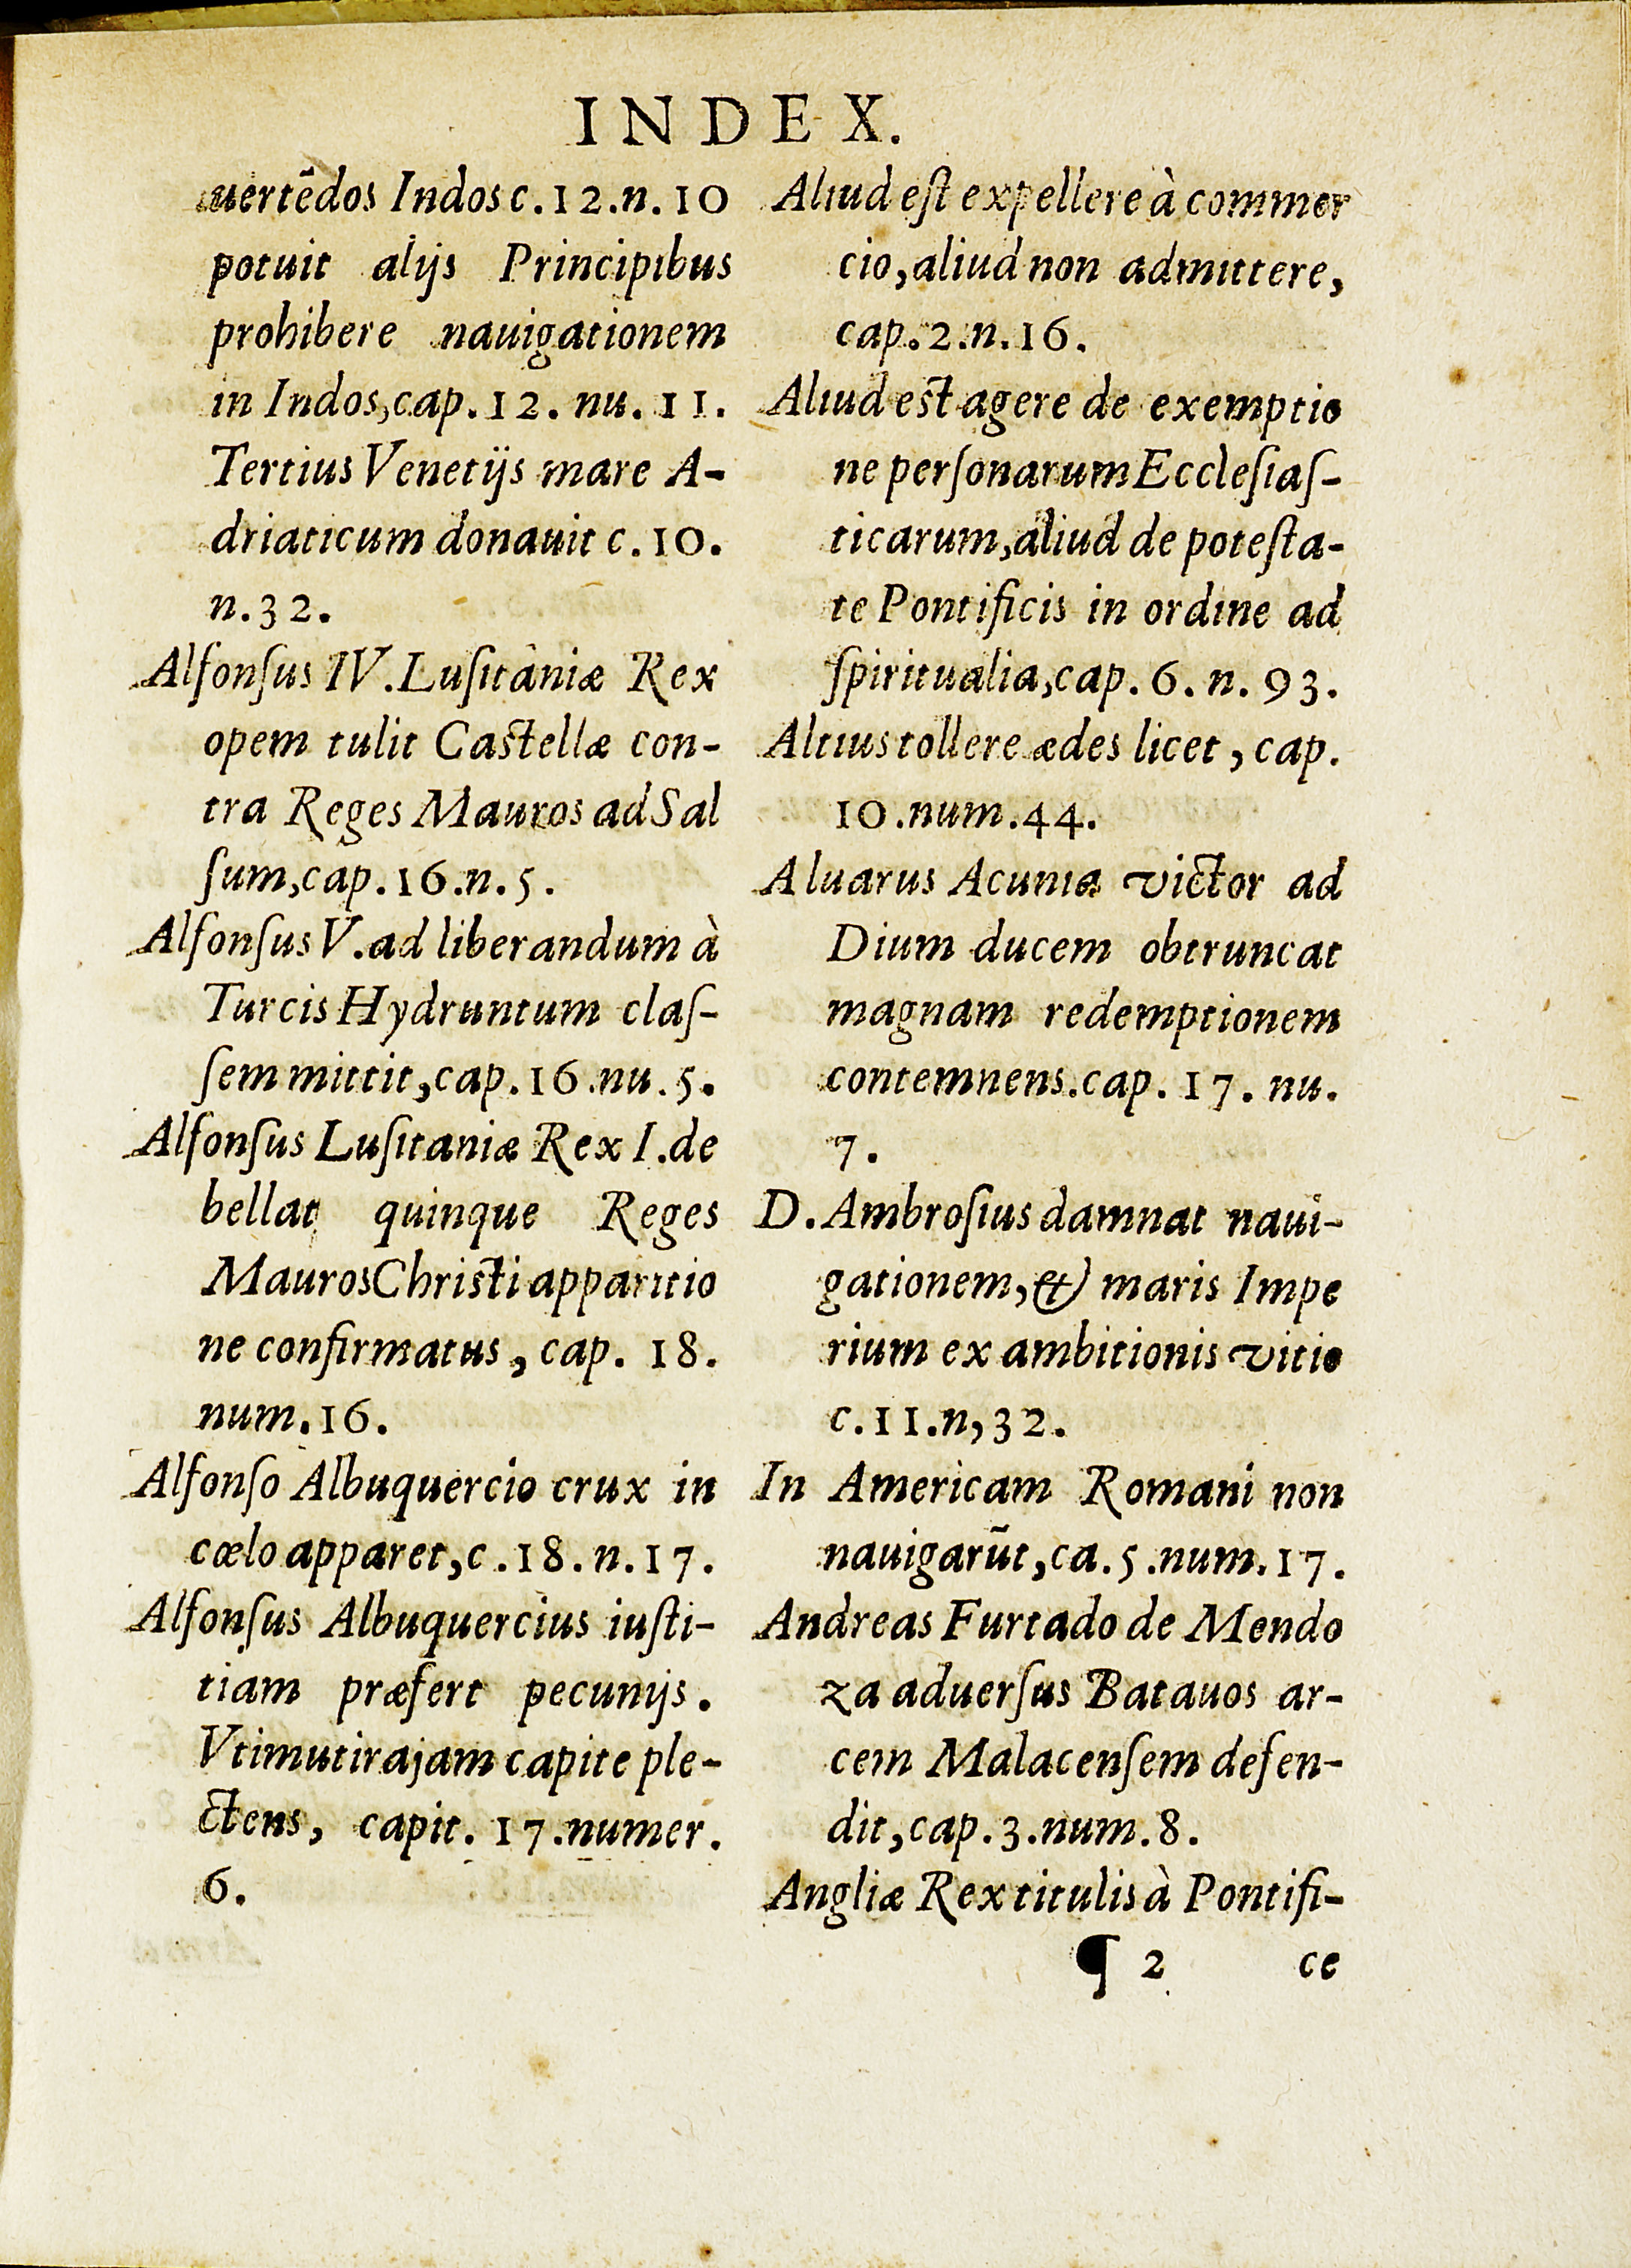 INDEX.
uertēdos Indos c.12.n.10
potuit alijs Principibus
prohibere nauigationem
in Indos,cap.12. nu. 11.
Tertius Venetijs mare A-
driaticum donauit c.10.
n.32.
Alfonſus IV.Luſitaniæ Rex
opem tulit Caſtellæ con-
tra Reges Mauros ad Sal
ſum,cap.16.n.5.
Alfonſus V.ad liberandum à
Turcis Hydruntum claſ-
ſem mittit,cap.16.nu.5.
Alfonſus Luſitaniæ Rex I.de
bellat quinque Reges
Mauros Chriſti apparitio
ne confirmatus, cap. 18.
num.16.
Alfonſo Albuquercio crux in
cœlo apparet,c.18.n.17.
Alfonſus Albuquercius iuſti-
tiam præfert pecunijs.
Vtimutirajam capite ple-
ctens, capit. 17.numer.
6.
Aliud eſt expellere à commer
cio,aliud non admittere,
cap.2.n.16.
Aliud eſt agere de exemptio
ne perſonarum Eccleſiaſ-
ticarum,aliud de poteſta-
te Pontificis in ordine ad
ſpiritualia,cap.6.n.93.
Altius tollere ædes licet, cap.
10.num.44.
Aluarus Acunia victor ad
Dium ducem obtruncat
magnam redemptionem
contemnens.cap. 17. nu.
7.
D.Ambroſius damnat naui-
gationem,& maris Impe
rium ex ambitionis vitio
c.11.n,32.
In Americam Romani non
nauigarūt,ca.5.num.17.
Andreas Furtado de Mendo
za aduerſus Batauos ar-
cem Malacenſem defen-
dit,cap.3.num.8.
Angliæ Rex titulis à Pontifi-
¶ 2 ce